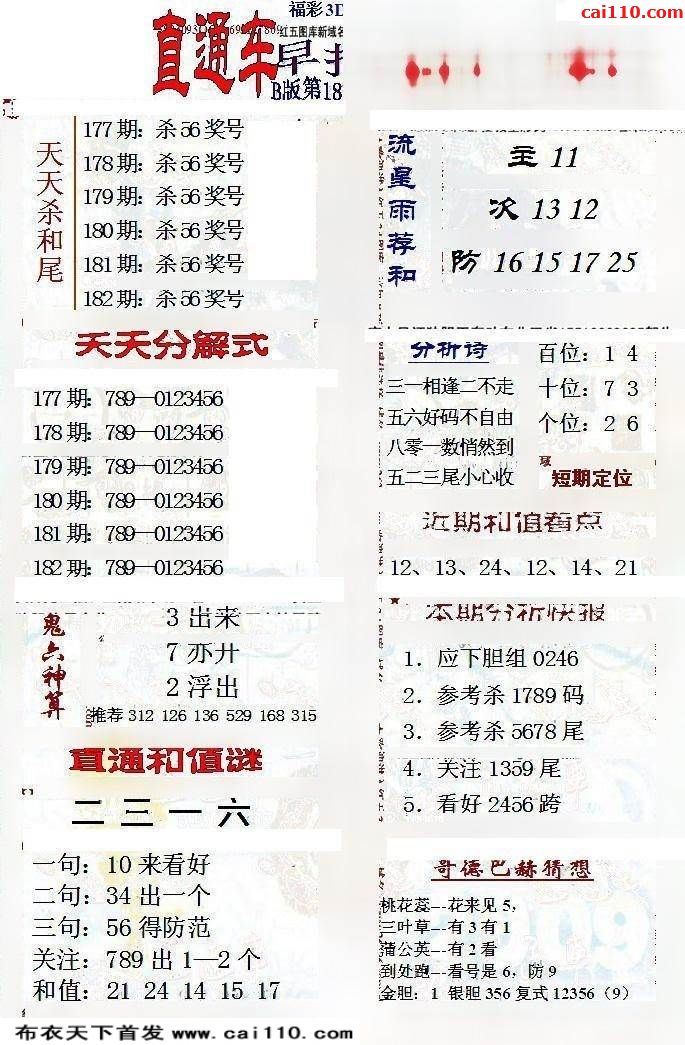 cai110.com
福彩3D
直通车
早报
B版第18
天天杀和尾
177期：杀56奖号
178期：杀56奖号
179期：杀56奖号
180期：杀56奖号
181期：杀56奖号
182期：杀56奖号
天天分解式
177期：789—0123456
178期：789—0123456
179期：789—0123456
180期：789—0123456
181期：789—0123456
182期：789—0123456
鬼六神算
3出来
7亦廾
2浮出
推荐 312 126 136 529 168 315
直通和值谜
二三一六
一句：10来看好
二句：34出一个
三句：56得防范
关注：789出1—2个
和值：21 24 14 15 17
流星雨荐和
主 11
次 13 12
防 16 15 17 25
分析诗
三一相逢二不走
五六好码不自由
八零一数悄然到
五二三尾小心收
百位：1 4
十位：7 3
个位：2 6
短期定位
近期和值看点
12、13、24、12、14、21
本期分析快报
1. 应下胆组0246
2. 参考杀1789码
3. 参考杀5678尾
4. 关注1359尾
5. 看好2456跨
哥德巴赫猜想
桃花蕊---花来见5，
三叶草---有3有1
蒲公英---有2看
到处跑---看号是6，防9
金胆：1 银胆356复式12356（9）
布衣天下首发 www.cai110.com